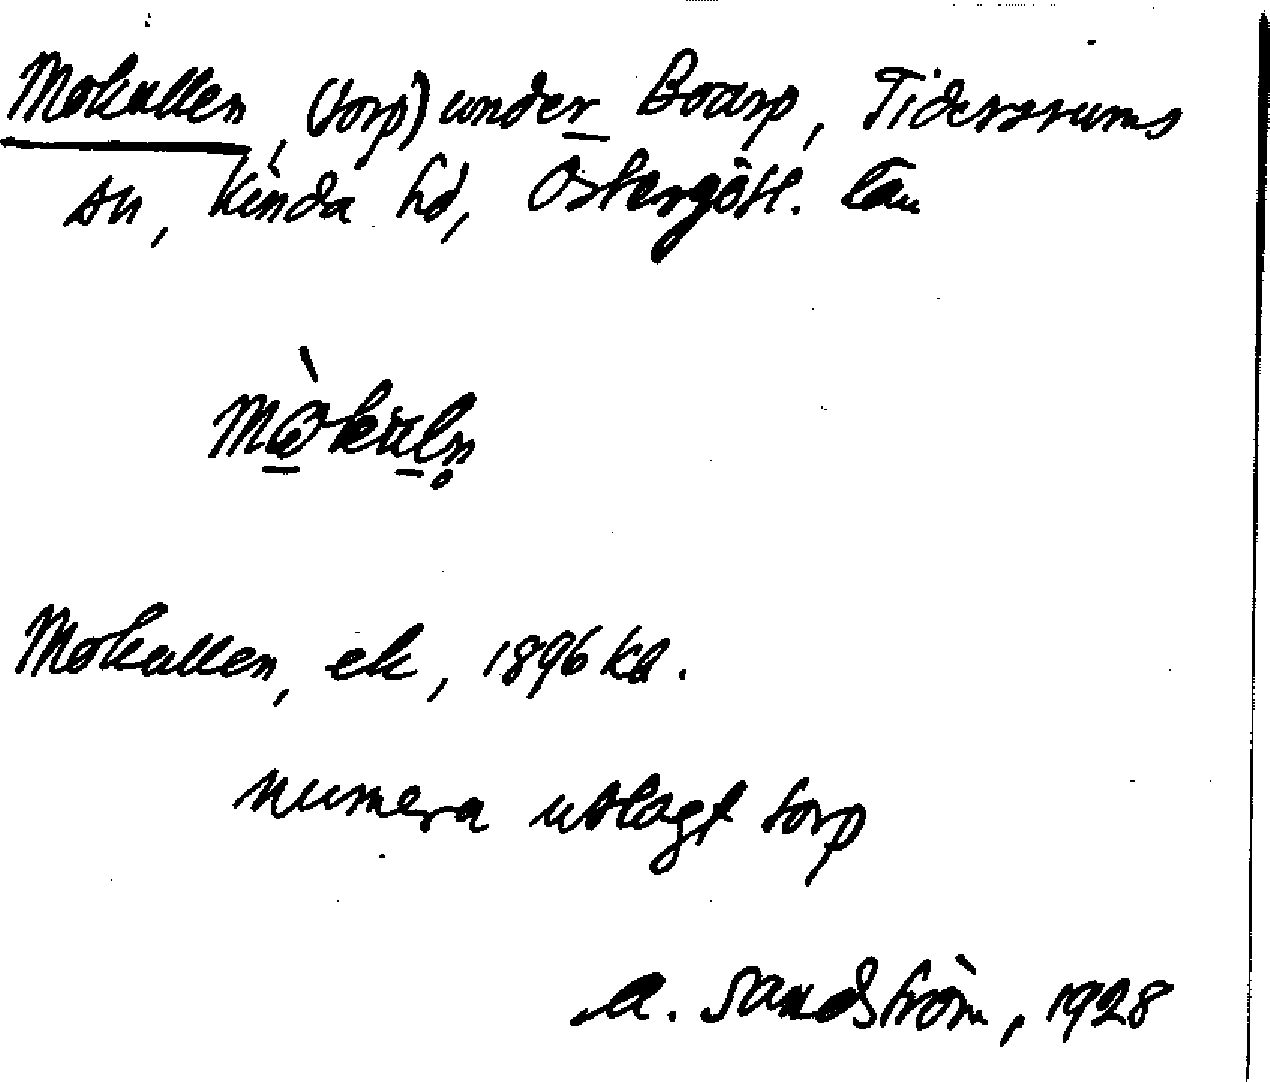 Mokullen, (torp) under Boarp, Tidersrums
sn, Kinda hd, Östergötl. län
Mokullen, ek, 1896 ka.
numera utlagt torp
A. Sandström, 1928